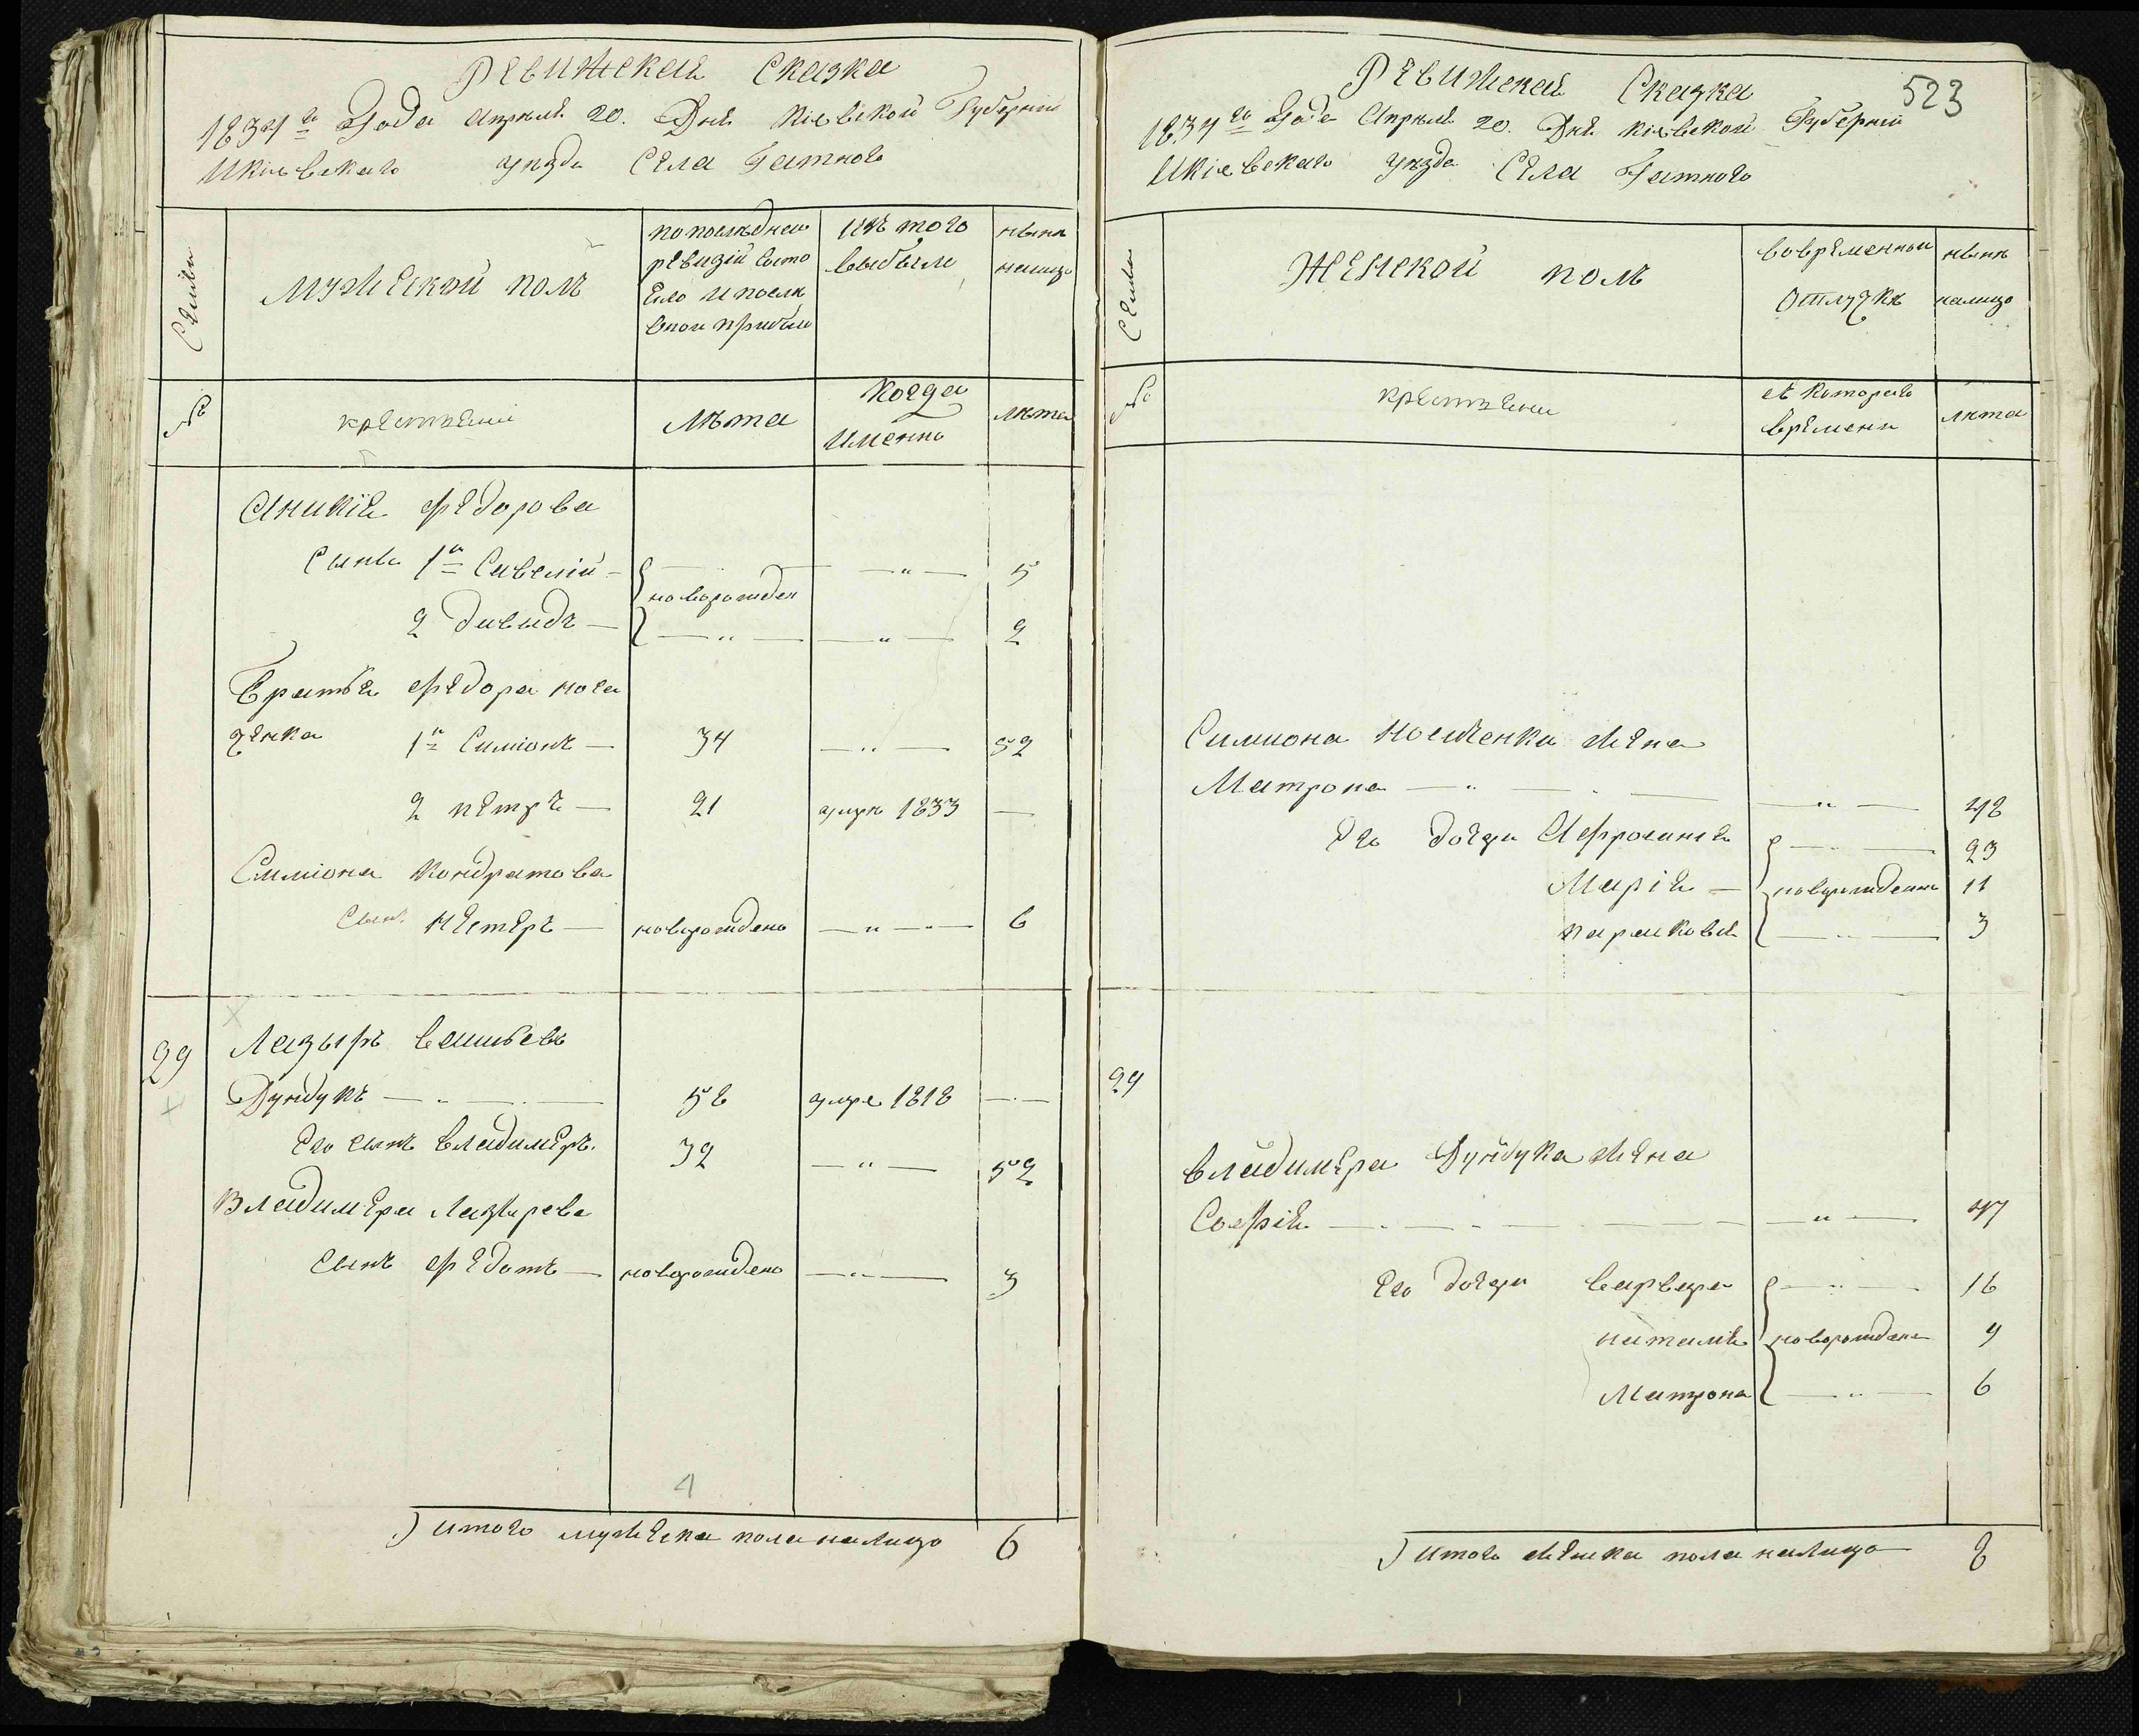 Ревижская Сказка
1834го Года Апреля 20. Дня Кіевской Губерніи
И Кіевскаго уезда Села Гатного
Семьи
мужеской полъ
по последней
ревизіи состо
яло и после
оной прибыло
изъ того
выбыли
ныне
налицо
№
крестьяни
лета
когда
именно
лета
Аникія Федорова
сынъ 1й Савелій — — " — 5
новорожден
2 Давидъ — — " — — " — 2
Братья Федора Носа
ченка 1й Симіонъ — 34 — " — 52
2 петръ — 21 умре 1833 —
Симіона Кондратова
сынъ Нестеръ — новорожденъ — " — 6
29 Лазырь Васильевъ
Дундукъ — 58 умре 1818 —
Его сынъ Владимеръ. 32 — " — 52
Владимера Лазарева
сынъ Федотъ — новорожденъ — " — 3
4
Итого мужеска пола налицо 6
523
Ревижская Сказка
1834го Года Апреля 20. Дня Кіевской Губерніи
И Кіевскаго уезда Села Гатного
Семьи
Женской полъ
во временной
отлучке
ныне
налицо
№
крестьяни
съ котораго
времени
лета
Симиона Носаченка жена
Матрона — " — — " — 48
Его дочери Афросинья — 23
Марія — новорожденны 11
парасковья — " — 3
29
Владимера Дундука жена
Софія — " — 47
Его дочери Варвара — " — 16
наталья новорождены 9
Матрона — " — 6
Итого женска пола налицо 8